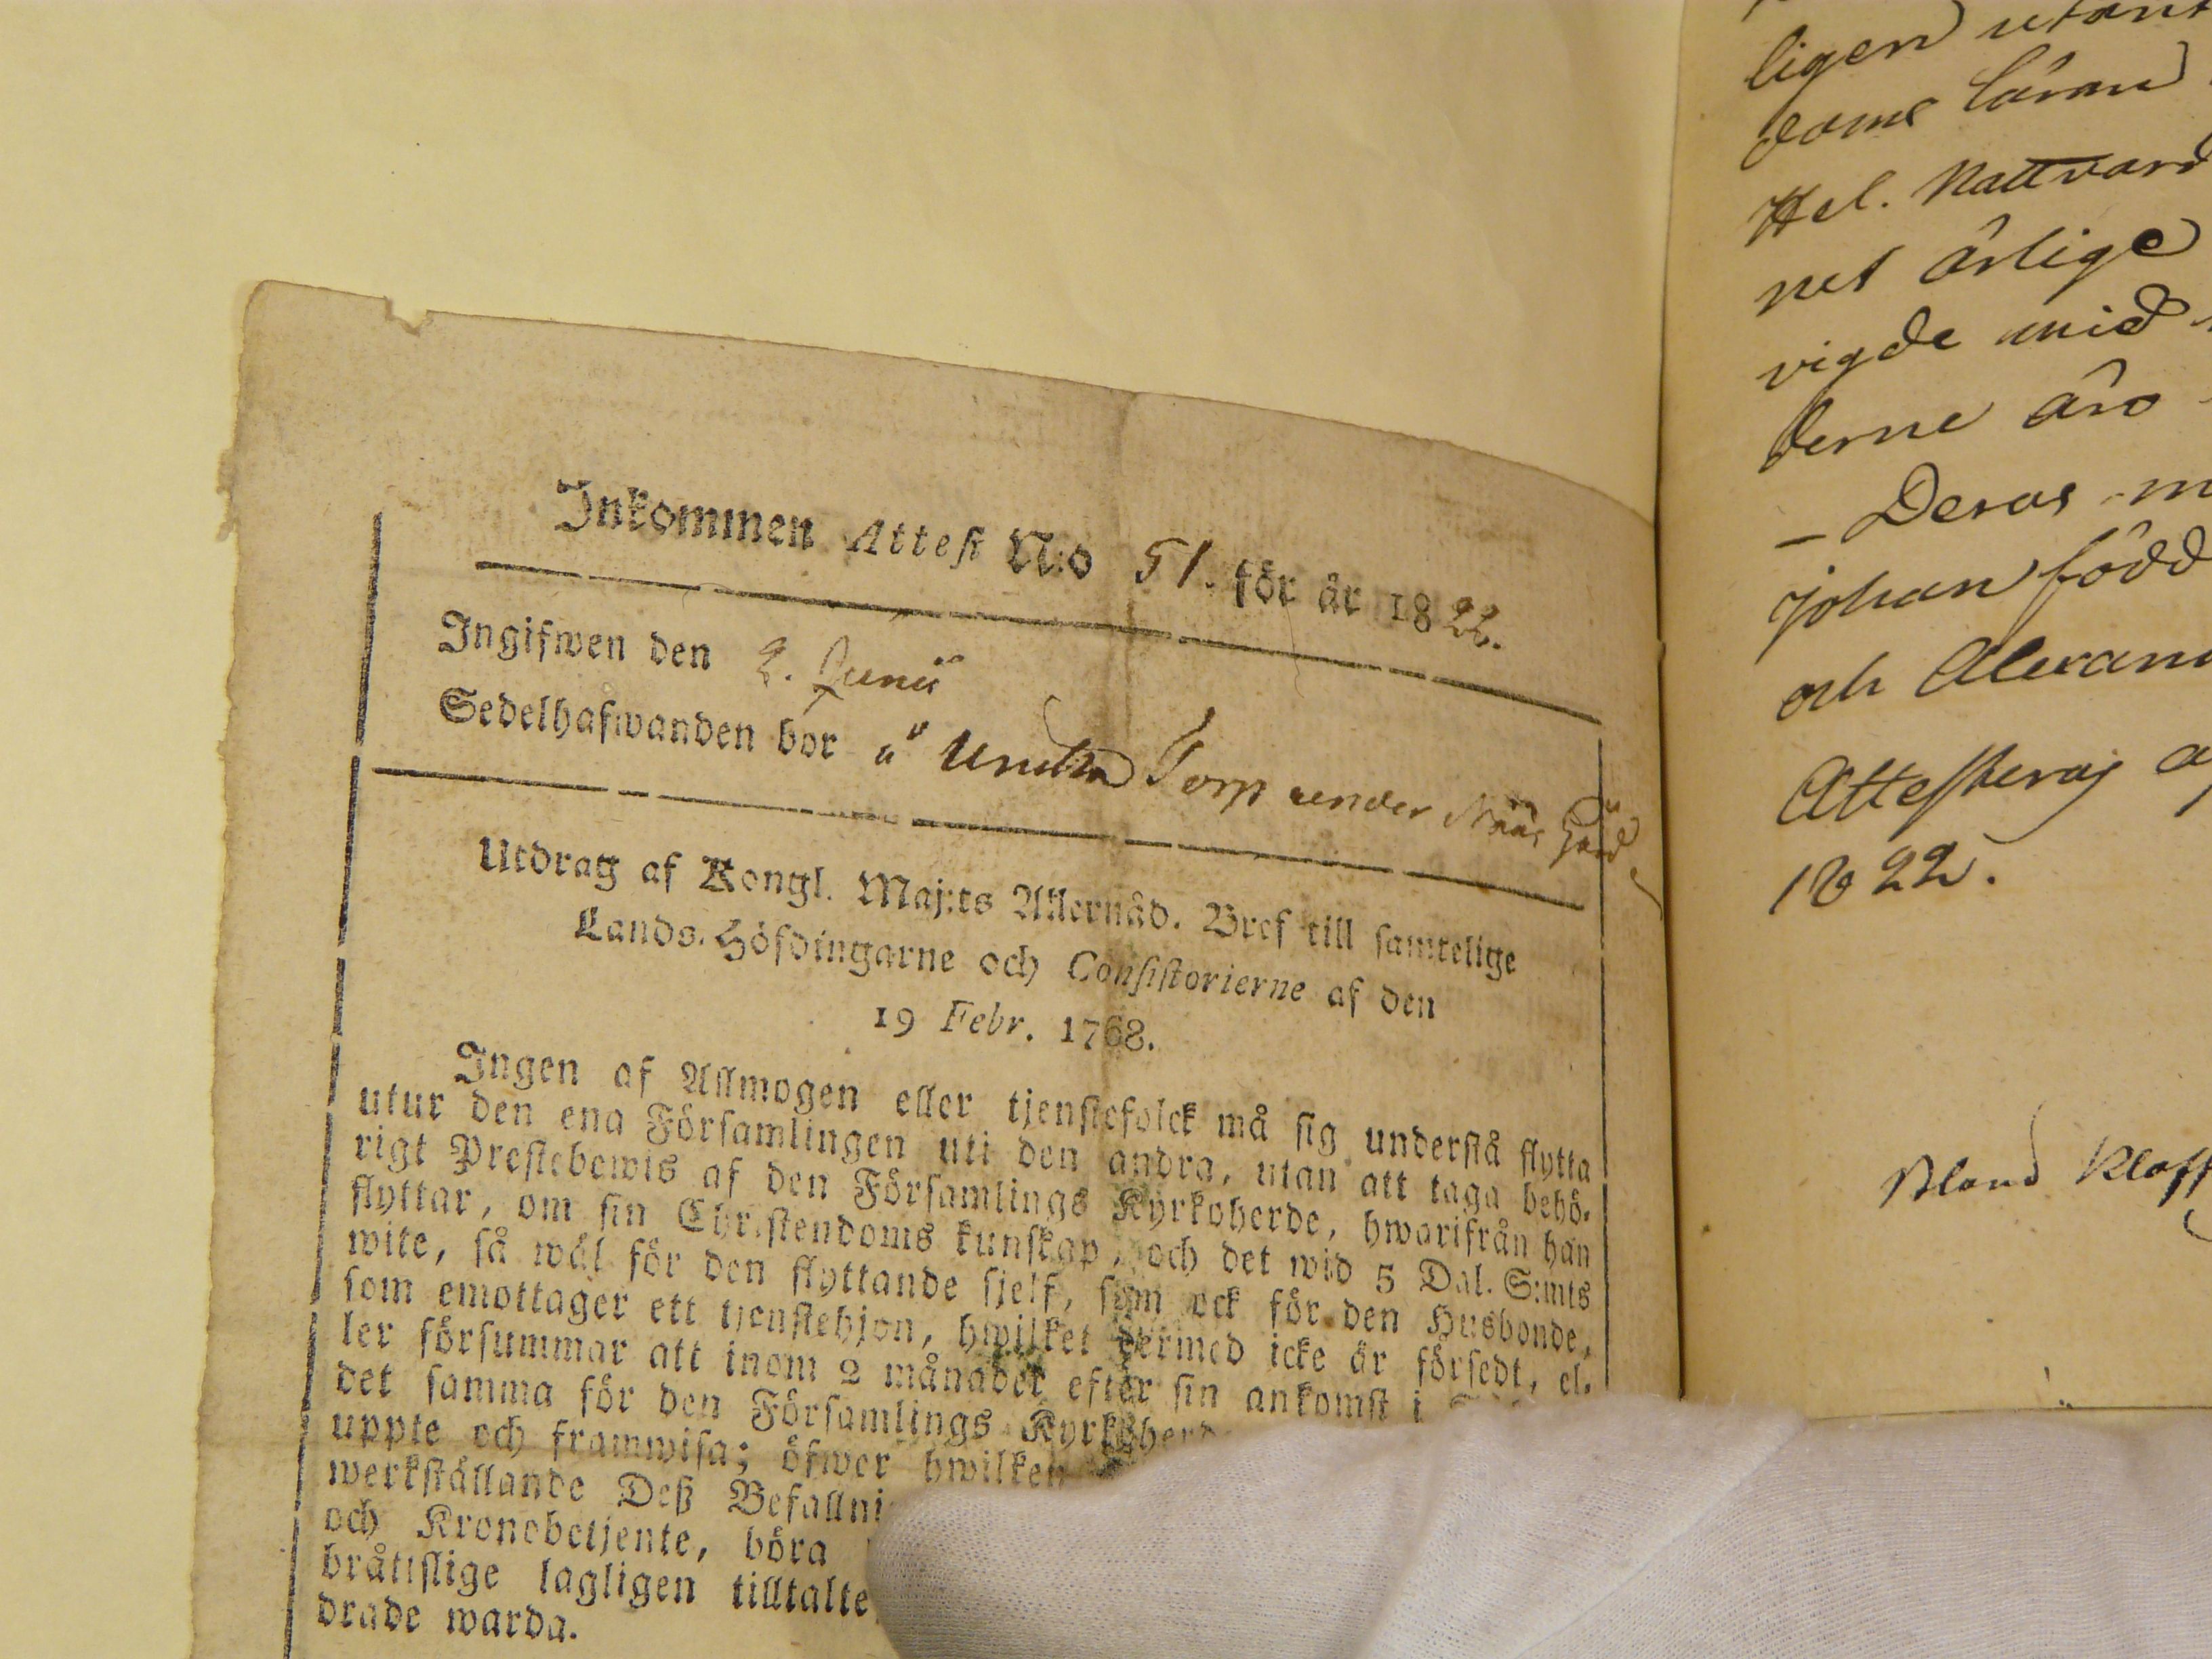 Inkommen Attest N:o 51. för år 1822.
Ingifwen den 2. Junii
Sedelhafwanden bor å Torp under Nääs Gård
Utdrag af Kongl. Maj:ts Allernåd. Bref till samtelige
Lands-Höfdingarne och Consistorierne af den
19 Febr. 1768.
Ingen af Allmogen eller tjenstefolck må sig understå flytta
utur den ena Församlingen uti den andra, utan att taga behö-
rigt Prestebewis af den Församlings Kyrkoherde, hwarifrån han
flyttar, om sin Christendoms kunskap, och det wid 5 Dal. S:mts
wite, så wäl för den flyttande sjelf, som ock för den Husbonde,
som emottager ett tjenstehjon, hwilket dermed icke är försedt, el-
ler försummar att inom 2 månader efter sin ankomst i
det samma för den Församlings Kyrkoherd
uppte och framwisa; öfwer hwilken
werkställande Deß Befallni
och Kronobetjente, böra
bråttslige lagligen tilltalte
drade warda.
ligen utant
doms läran
Hel. Nattvard
net ärlige
vigde med
derne äro
– Deras m
Johan född
och Alexand
Attesteras af
1822.
Bland Klass